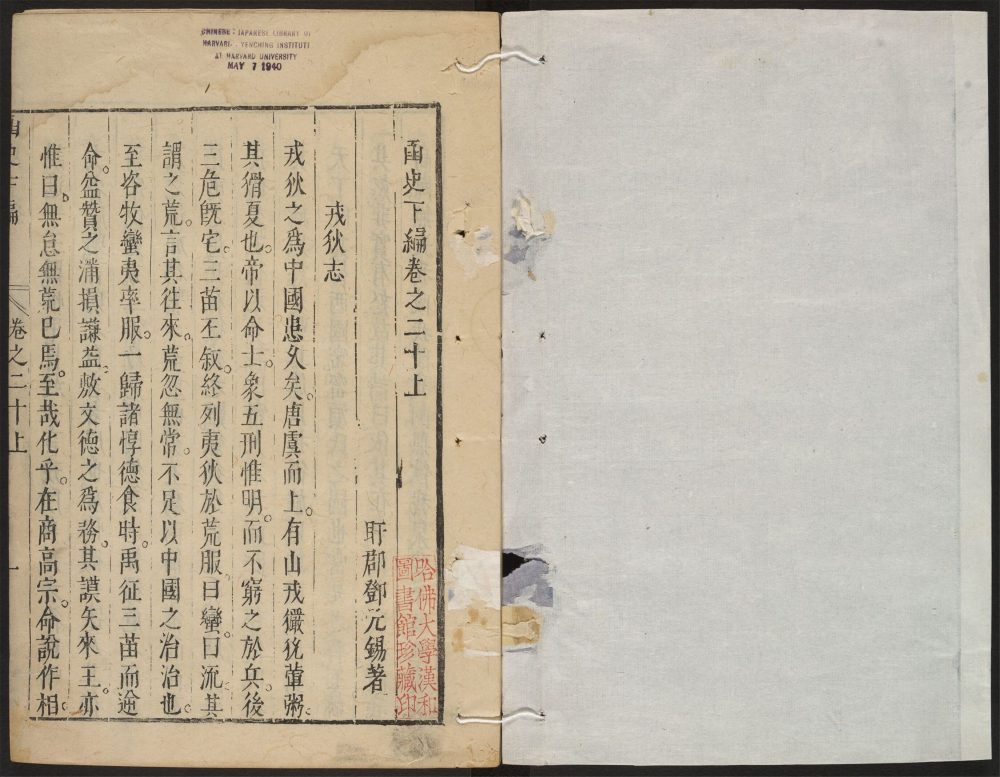 CHINESE - JAPANESE LIBRARY OF
HARVARD - YENCHING INSTITUTE
AT HARVARD UNIVERSITY
MAY 7 1940
函史下編卷之二十上
盱郡鄧元錫著
哈佛大學漢和
圖書館珍藏印
戎狄志
戎狄之爲中國患久矣。唐虞而上。有山戎玁狁葷粥。
其猾夏也。帝以命士。象五刑惟明。而不窮之於兵。後
三危旣宅。三苗丕叙。終列夷狄於荒服。曰蠻。曰流。其
謂之荒。言其往來。荒忽無常。不足以中國之治治也。
至咨牧蠻夷率服。一歸諸惇德食時。禹征三苗而逆
命。益贊之滿損謙益。敷文德之爲務。其謨矢來王。亦
惟曰。無怠無荒巳焉。至哉化乎。在商高宗。命說作相。
函史下編
卷之二十上
一